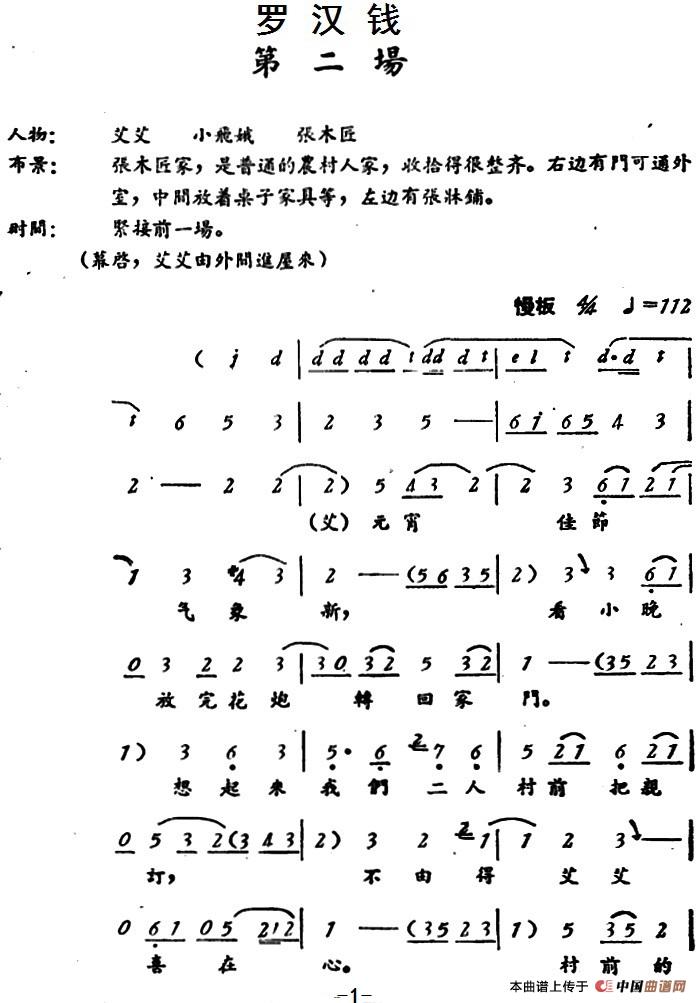 罗汉钱
第二場
人物： 艾艾 小飛娥 張木匠
布景： 張木匠家，是普通的農村人家，收拾得很整齐。右边有門可通外
室，中間放着桌子家具等，左边有張牀鋪。
时間： 緊接前一場。
（幕啓，艾艾由外間進屋來）
慢板 4/4 ♩=112
( i d | d d d d t d d d t | e l t d·d t |
t 6 5 3 | 2 3 5 — | 6 i 6 5 4 3 |
2 — 2 2 | 2 ) 5 4 3 2 | 2 3 6 1 2 1 |
（艾）元宵 佳節
1 3 #4 3 | 2 — (5 6 3 5 | 2) 3 3 6 1 |
气象 新， 看小晚
0 3 2 2 3 | 3 0 3 2 5 3 2 | 1 — (3 5 2 3 |
放完花炮 轉回家 門。
1) 3 6 3 | 5· 6 2 7 6 | 5 2 1 6 2 1 |
想起來我們二人村前把親
0 5 3 2 (3 4 3 | 2) 3 2 2 1 | 1 2 3 — |
訂， 不由得 艾艾
0 6 1 0 5 2 1 2 | 1 — (3 5 2 3 | 1) 5 3 5 2 |
喜在 心。 村前的
-1-
本曲谱上传于 中国曲谱网